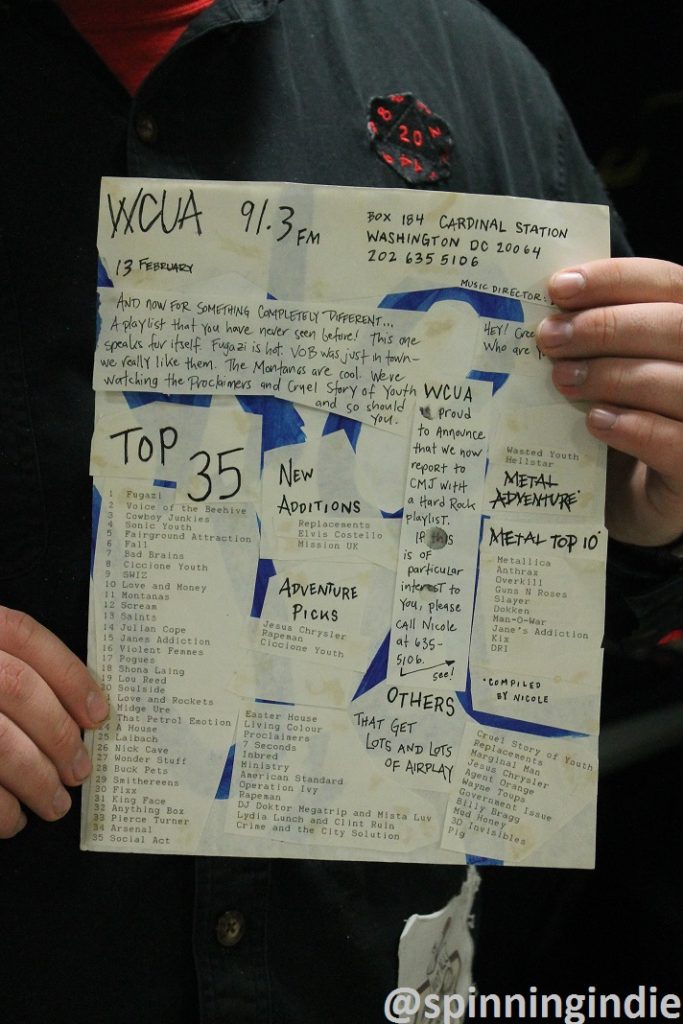 8
20
14
WCUA 91.3 FM
BOX 184 CARDINAL STATION
WASHINGTON DC 20064
202 635 5106
13 FEBRUARY
MUSIC DIRECTOR:
AND NOW FOR SOMETHING COMPLETELY DIFFERENT...
A playlist that you have never seen before! This one
speaks for itself. Fugazi is hot. VOB was just in town-
we really like them. The Montanas are cool. We're
watching the Proclaimers and Cruel Story of Youth
and so should
you.
HEY!
Who are
TOP
35
1 Fugazi
2 Voice of the Beehive
3 Cowboy Junkies
4 Sonic Youth
5 Fairground Attraction
6 Fall
7 Bad Brains
8 Ciccione Youth
9 SWIZ
10 Love and Honey
11 Montanas
12 Scream
13 Saints
14 Julian Cope
15 Janes Addiction
16 Violent Femmes
17 Pogues
18 Shona Laing
19 Lou Reed
20 Soulside
Love and Rockets
Midge Ure
That Petrol Emotion
24 A House
25 Laibach
26 Nick Cave
27 Wonder Stuff
28 Buck Pets
29 Smithereens
30 Fixx
31 King Face
32 Anything Box
33 Pierce Turner
34 Arsenal
35 Social Act
NEW
ADDITIONS
Replacements
Elvis Costello
Mission UK
ADVENTURE
PICKS
Jesus Chrysler
Rapeman
Ciccione Youth
Easter House
Living Colour
Proclaimers
7 Seconds
Inbred
Ministry
American Standard
Operation Ivy
Rapeman
DJ Doktor Megatrip and Mista Luv
Lydia Lunch and Clint Ruin
Crime and the City Solution
WCUA
is proud
to announce
that we now
report to
CMJ with
a Hard Rock
playlist.
IF this
is of
particular
interest to
you, please
call Nicole
at 635-
5106.
see!
OTHERS
THAT GET
LOTS AND LOTS
OF AIRPLAY
Wasted Youth
Hellstar
METAL
ADVENTURE*
METAL TOP 10*
Metallica
Anthrax
Overkill
Guns N Roses
Slayer
Dokken
Man-O-War
Jane's Addiction
Kix
DRI
*COMPILED
BY NICOLE
Cruel Story of Youth
Replacements
Marginal Man
Jesus Chrysler
Agent Orange
Wayne Toops
Government Issue
Billy Bragg
Mud Honey
3D Invisibles
Pig
@spinningindie